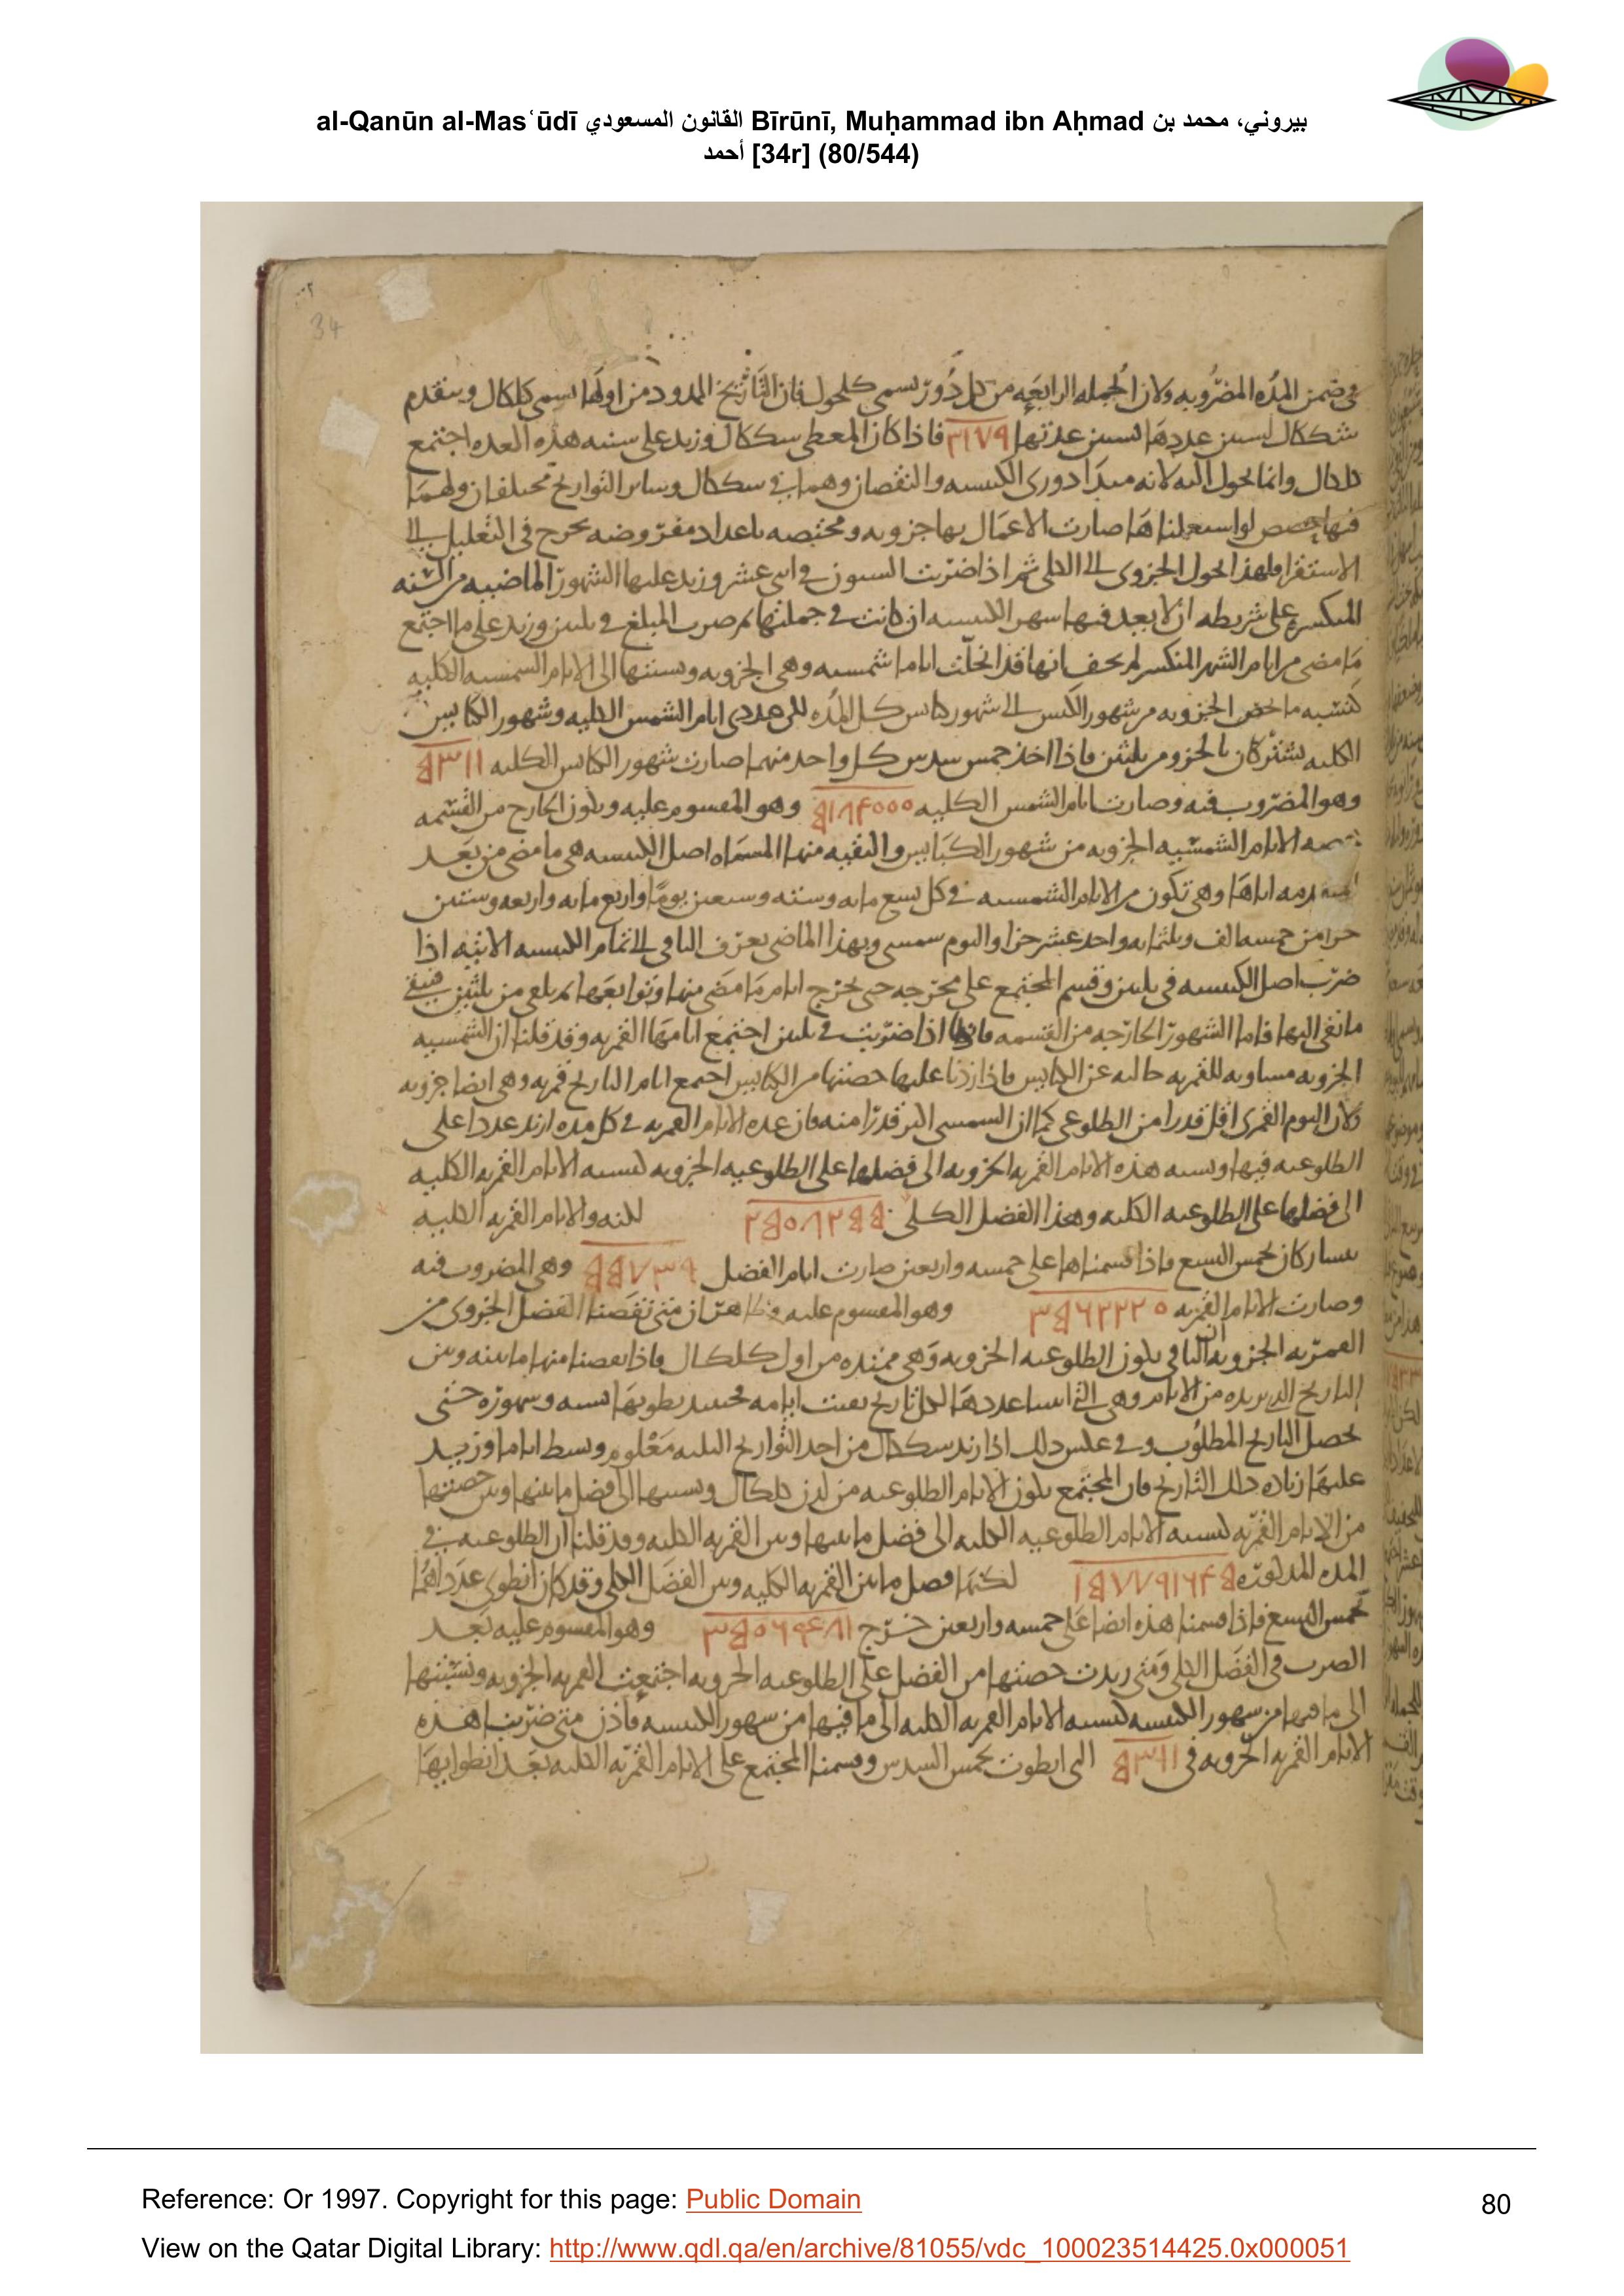 al-Qanūn al-Masʿūdī القانون المسعودي Bīrūnī, Muḥammad ibn Aḥmad بيروني، محمد بن
أحمد [34r] (80/544)
34
في ضمن المده المضروبه ولان الجمله الرابعه من كل دور تسمى كلجول فان التاريخ الممدود من اولها يسمى كلكال ويتقدم
شككال لسنين عددها لسنين عدتها ٣١٧٩ فاذا كان المعطى سككال وزيد على سنيه هذه العده اجتمع
كلكال وانما يحول اليه لانه مبدا دورى الكبيسه والنقصان وهما في سككال وساير التواريخ مختلفان ولهما
فيها حصص لو استعملناها صارت الاعمال بها جزويه ومختصه باعداد مفروضه تخرج في التعليل الى
الاستقرا فلهذا نحول الجزوى الى الكلى ثم اذا ضربت السنون في اثنى عشر وزيد عليها الشهور الماضيه من السنه
المنكسره على شريطه ان لا يعد فيها شهر الكبيسه ان كانت في جملتها ثم ضرب المبلغ في ثلثين وزيد على ما اجتمع
ما مضى من ايام الشهر المنكسر لم يخف انها قد انحلت اياما شمسيه وهى الجزويه ونسبتها الى الايام الشمسيه الكليه
كنسبه ما يخص الجزويه من شهور الكبس الى شهور كبايس كل المده لكن عددى ايام الشمس الكليه وشهور الكبايس
الكليه يشتركان بالجزو من ثلثين فاذا اخذ خمس سدس كل واحد منهما صارت شهور الكبايس الكليه ٥٣١١
وهو المضروب فيه وصارت ايام الشمس الكليه ٥١٨٤٠٠٠ وهو المقسوم عليه ويكون الخارج من القسمه
الايام الشمسيه الجزويه من شهور الكبايس والبقيه منها المسماه اصل الكبيسه هى ما مضى من بعد
اياها وهى تكون من الايام الشمسيه في كل تسع مايه وسته وسبعين يوما واربع مايه واربعه وستين
جزا من خمسه الف وثلثمايه واحد عشر جزا واليوم شمسى وبهذا الماضى يعرف الباقى الى تمام الكبيسه الاتيه اذا
ضرب اصل الكبيسه في ثلثين وقسم المجتمع على مخرجه حتى تخرج ايام ما مضى منها وتوابعها ثم يلقى من ثلثين فيبقى
ما بقى اليها فاما الشهور الخارجه من القسمه فانها اذا ضربت في ثلثين اجتمع ايامها القمريه وقد قلنا ان الشمسيه
الجزويه مساويه للقمريه خاليه عن الكبايس فاذا زدنا عليها حصتها من الكبايس اجتمع ايام التاريخ قمريه وهى ايضا جزويه
ولان اليوم القمرى اقل قدرا من الطلوعى كما ان الشمسى اكبر قدرا منه فان عده الايام القمريه في كل مده ازيد عددا على
الطلوعيه فيها ونسبه هذه الايام القمريه الجزويه الى فضلها على الطلوعيه الجزويه كنسبه الايام القمريه الكليه
الى فضلها على الطلوعيه الكليه وهذا الفضل الكلى ٢٥٠٨٢٥٥ لكنه والايام القمريه الكليه
يشاركان بخمس التسع فاذا قسمناها على خمسه واربعين صارت ايام الفضل ٥٥٧٣٩ وهى المضروب فيه
وصارت الايام القمريه ٣٥٦٢٢٢٠ وهو المقسوم عليه وظاهر ان متى نقصنا الفضل الجزوى من
القمريه الجزويه ان الباقى يكون الطلوعيه الجزويه وهى ممتده من اول كلكال فاذا نقصنا منها ما بينه وبين
التاريخ الذى نريده من الايام وهى التى اثبتنا عددها لكل تاريخ بقيت ايامه فحينيذ يطويها لسنيه وشهوره حتى
يحصل التاريخ المطلوب وفي عكس ذلك اذا زيد سككال من احد التواريخ الثلثه معلوم وبسط اياما وزيد
عليها زياده ذلك التاريخ فان المجتمع يكون الايام الطلوعيه من لدن كلكال ونسبتها الى فضل ما بينها وبين حصتها
من الايام القمريه كنسبه الايام الطلوعيه الكليه الى فضل ما بينها وبين القمريه الكليه وقد قلنا ان الطلوعيه في
المده المذكوره ١٥٧٧٩١٦٤٥ لكنها فضل ما بين القمريه الكليه وبين الفضل الكلى وقد كان انطوى عدداهما
بخمس التسع فاذا قسمنا هذه ايضا على خمسه واربعين خرج ٣٥٠٦٩٤٨١ وهو المقسوم عليه بعد
الضرب في الفضل الكلى ومتى زيدت حصتها من الفضل على الطلوعيه الجزويه اجتمعت القمريه الجزويه ونسبتها
الى ما فيها من شهور الكبيسه كنسبه الايام القمريه الكليه الى ما فيها من شهور الكبيسه فاذن متى ضربنا هذه
الايام القمريه الجزويه في ٥٣١١ التى انطوت بخمس السدس وقسمنا المجتمع على الايام القمريه الكليه بعد انطوايها
Reference: Or 1997. Copyright for this page: Public Domain
80
View on the Qatar Digital Library: http://www.qdl.qa/en/archive/81055/vdc_100023514425.0x000051